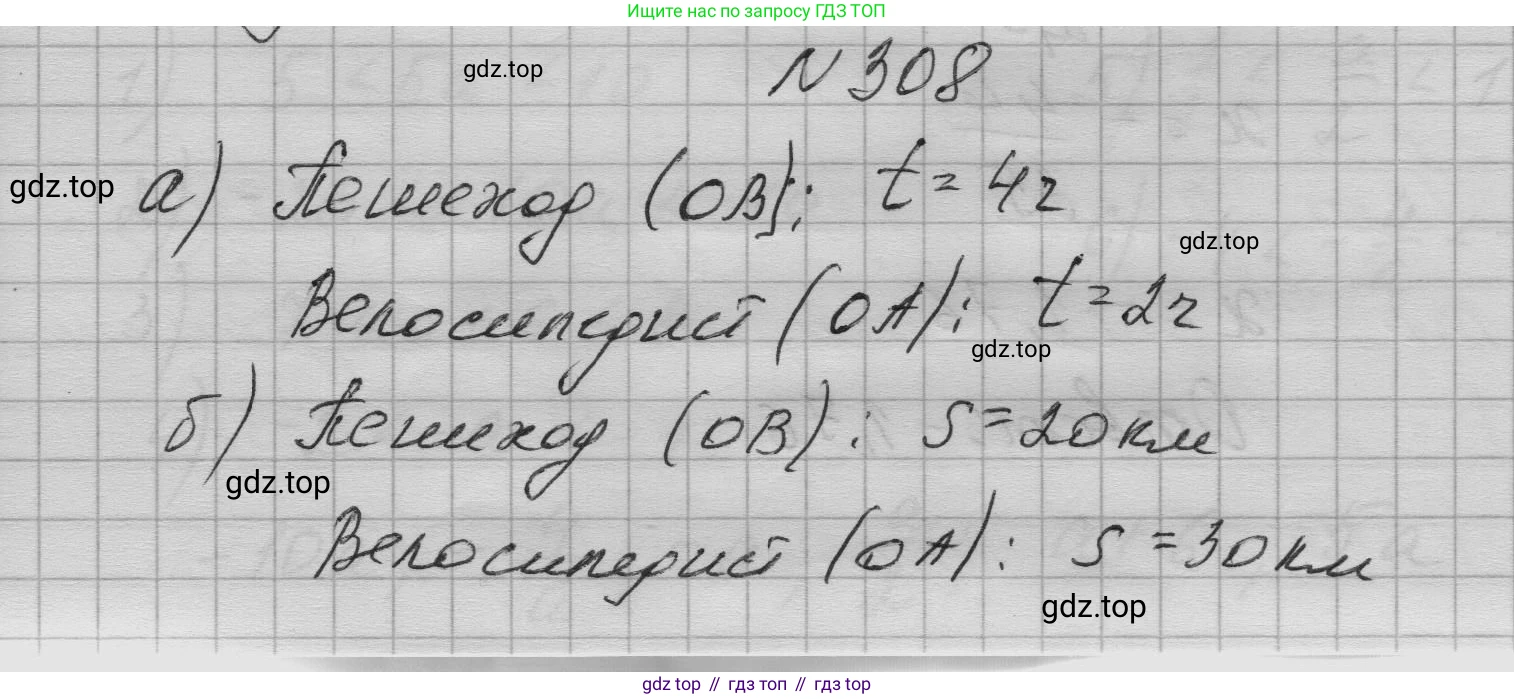 Ищите нас по запросу ГДЗ ТОП
N 308
gdz.top
gdz.top а) Пешеход (ОВ): t = 4 ч
gdz.top
Велосипедист (ОА): t = 2 ч
gdz.top
б) Пешиход (ОВ): S = 20 км
gdz.top
Велосипедист (ОА): S = 30 км
gdz.top
gdz top // гдз топ // гдз top